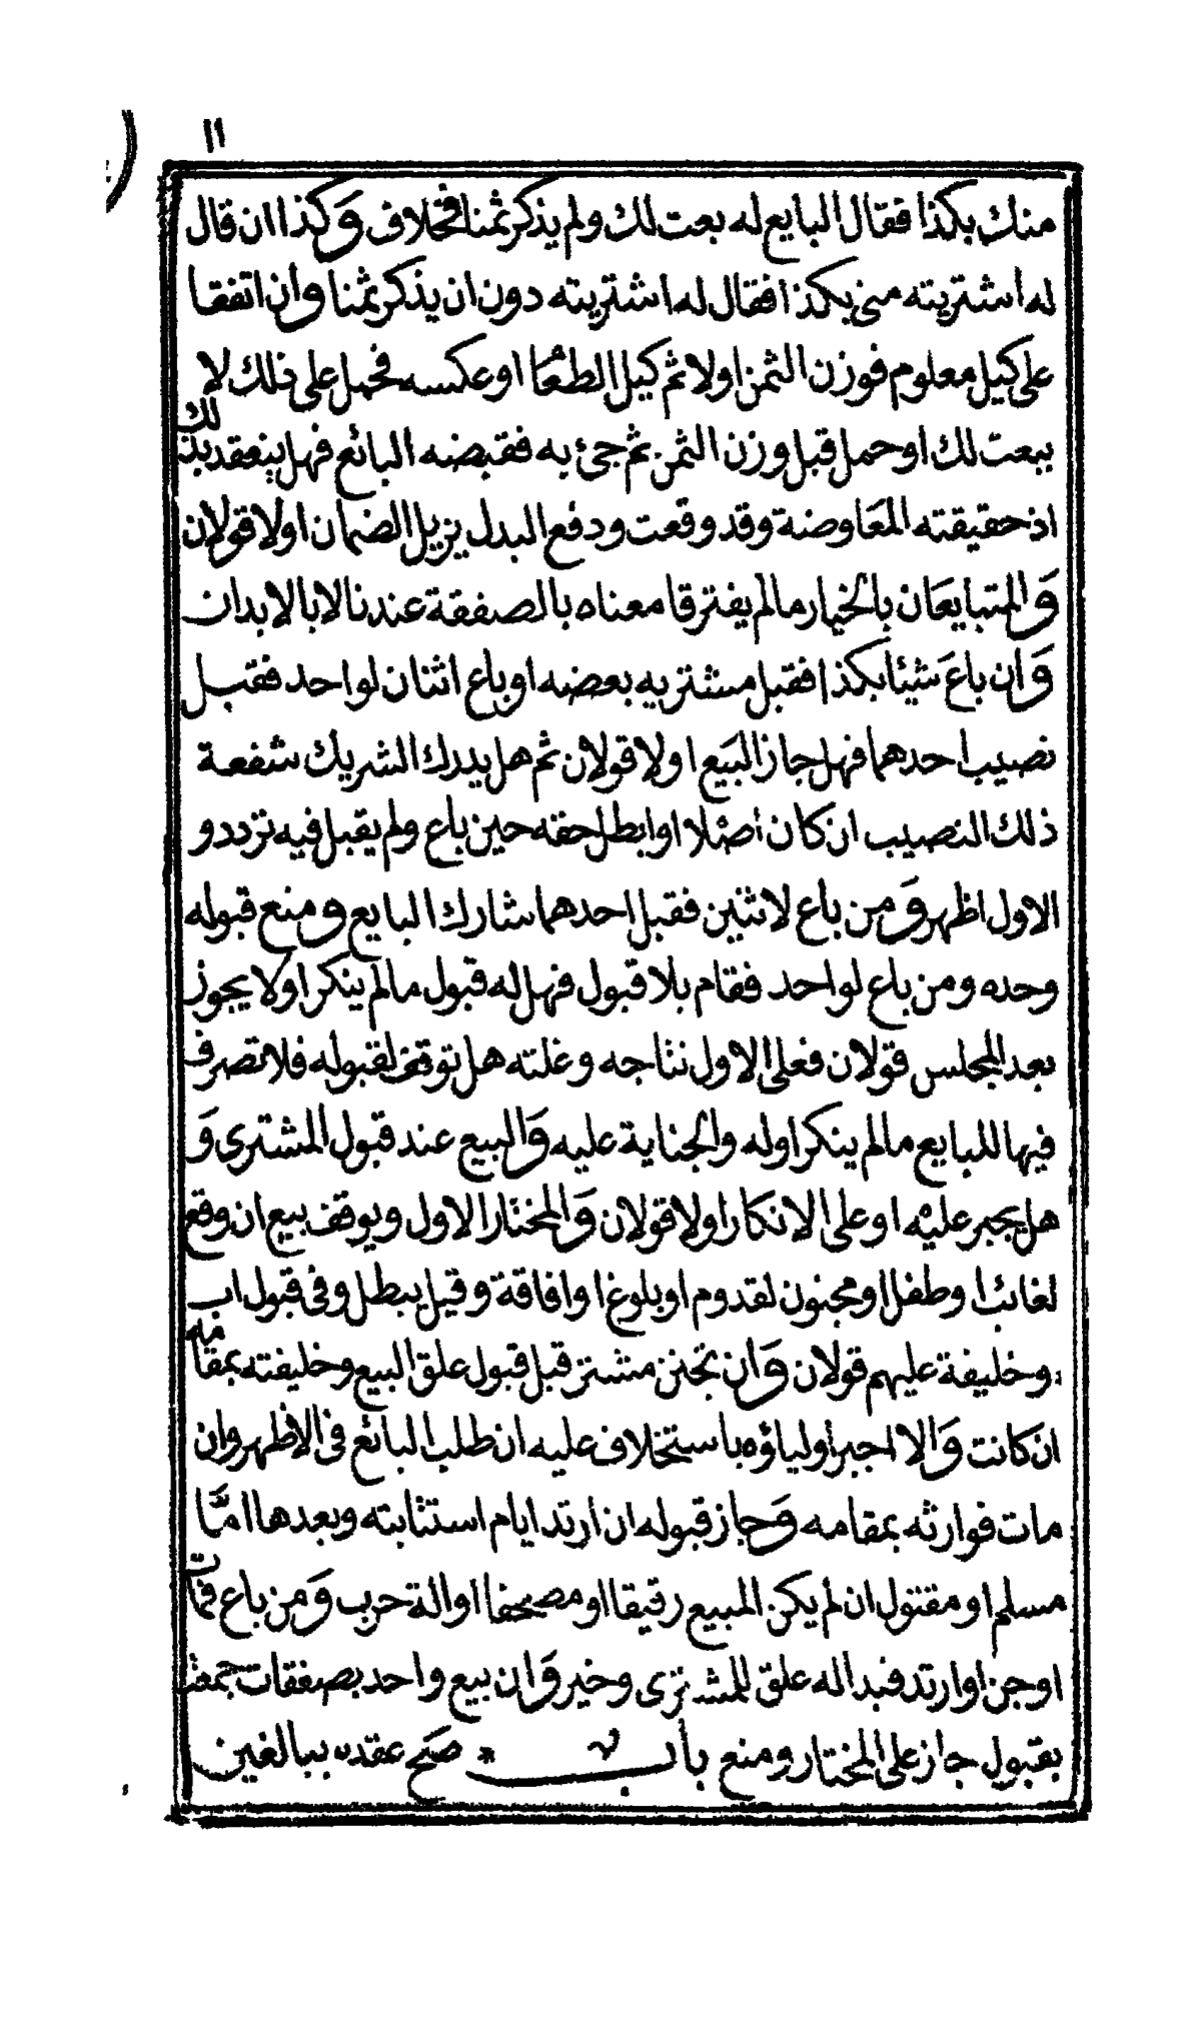 ١١
منك بكذا فقال البايع له بعت لك ولم يذكر ثمنا فخلاف وكذا ان قال
له اشتريته مني بكذا فقال له اشتريته دون ان يذكر ثمنا وان اتفقا
على كيل معلوم فوزن الثمن اولا ثم كيل الطعام او عكسه فحمل على ذلك لا
ببعت لك او حمل قبل وزن الثمن ثم جئ به فقبضه البائع فهل ينعقد بذلك
اذ حقيقته المعاوضة وقد وقعت ودفع البدل يزيل الضمان اولا قولان
والمتبايعان بالخيار مالم يفترقا معناه بالصفقة عندنا لا بالابدان
وان باع شيئا بكذا فقبل مشتريه بعضه او باع اثنان لواحد فقبل
نصيب احدهما فهل جاز البيع اولا قولان ثم هل يدرك الشريك شفعة
ذلك النصيب ان كان اصلا او ابطل حقه حين باع ولم يقبل فيه تردد و
الاول اظهر ومن باع لاثنين فقبل احدهما شارك البايع ومنع قبوله
وحده ومن باع لواحد فقام بلا قبول فهل له قبول مالم ينكر اولا يجوز
بعد المجلس قولان فعلى الاول نتاجه وغلته هل توقف لقبوله فلا تصرف
فيها للبايع مالم ينكر اوله والجناية عليه والبيع عند قبول المشترى و
هل يجبر عليه او على الانكار اولا قولان والمختار الاول ويوقف بيع ان وقع
لغائب او طفل او مجنون لقدوم او بلوغ او افاقة وقيل يبطل وفى قبول اب
وخليفة عليهم قولان وان تجنن مشتر قبل قبول علق البيع وخليفته بمقامه
ان كانت والا اجبر اولياؤه باستخلاف عليه ان طلب البائع فى الاظهر وان
مات فوارثه بمقامه وجاز قبوله ان ارتد ايام استثابته وبعدها اما
مسلم او مقتول ان لم يكن المبيع رقيقا او مصحفا او الة حرب ومن باع فمات
او جن او ارتد فبداله علق للمشترى وخير وان بيع واحد بصفقات جمعت
بقبول جاز على المختار ومنع باب * صح عقده ببالغين